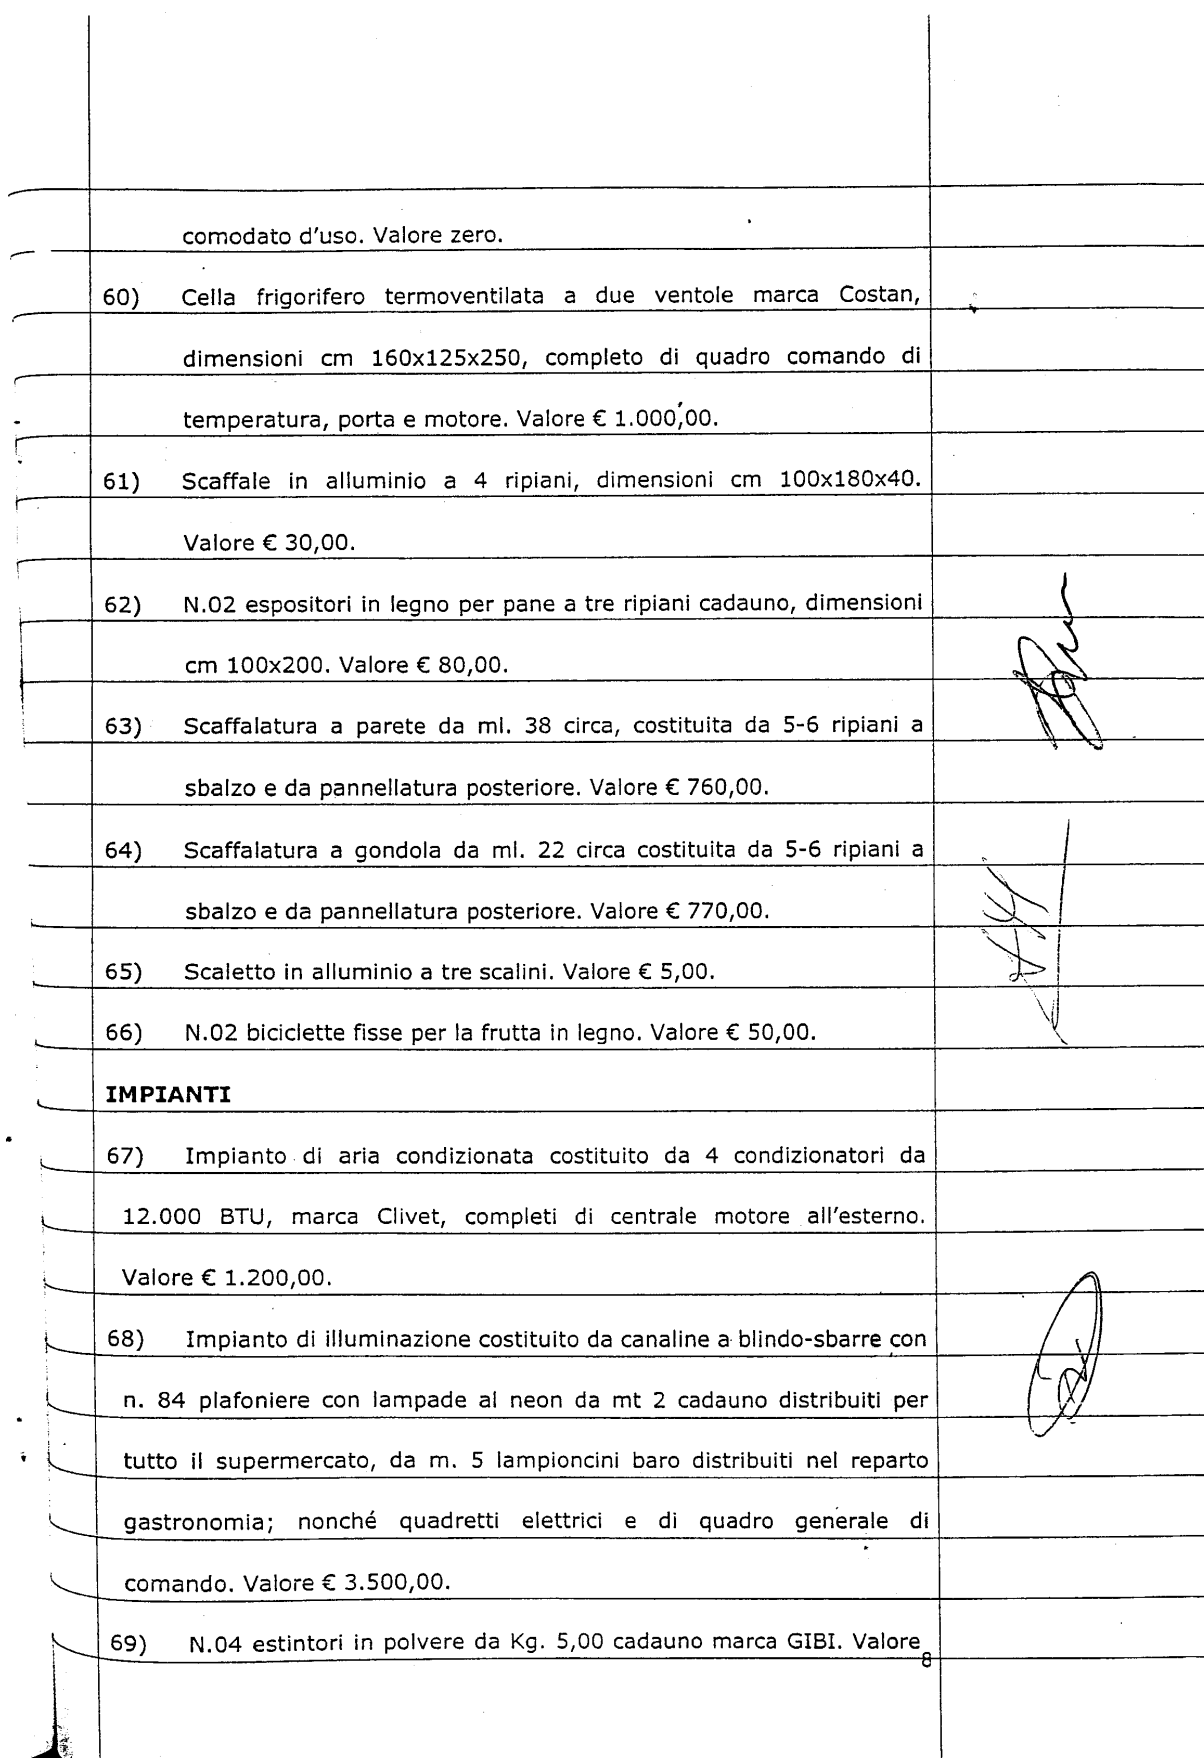 comodato d'uso. Valore zero.
60) Cella frigorifero termoventilata a due ventole marca Costan,
dimensioni cm 160x125x250, completo di quadro comando di
temperatura, porta e motore. Valore € 1.000,00.
61) Scaffale in alluminio a 4 ripiani, dimensioni cm 100x180x40.
Valore € 30,00.
62) N.02 espositori in legno per pane a tre ripiani cadauno, dimensioni
cm 100x200. Valore € 80,00.
63) Scaffalatura a parete da ml. 38 circa, costituita da 5-6 ripiani a
sbalzo e da pannellatura posteriore. Valore € 760,00.
64) Scaffalatura a gondola da ml. 22 circa costituita da 5-6 ripiani a
sbalzo e da pannellatura posteriore. Valore € 770,00.
65) Scaletto in alluminio a tre scalini. Valore € 5,00.
66) N.02 biciclette fisse per la frutta in legno. Valore € 50,00.
IMPIANTI
67) Impianto di aria condizionata costituito da 4 condizionatori da
12.000 BTU, marca Clivet, completi di centrale motore all'esterno.
Valore € 1.200,00.
68) Impianto di illuminazione costituito da canaline a blindo-sbarre con
n. 84 plafoniere con lampade al neon da mt 2 cadauno distribuiti per
tutto il supermercato, da m. 5 lampioncini baro distribuiti nel reparto
gastronomia; nonché quadretti elettrici e di quadro generale di
comando. Valore € 3.500,00.
69) N.04 estintori in polvere da Kg. 5,00 cadauno marca GIBI. Valore
8